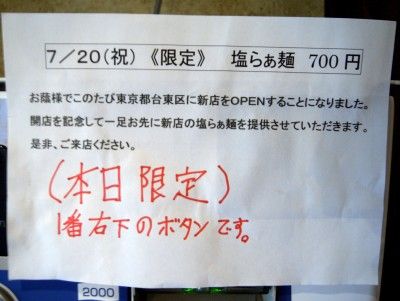 7／20（祝）《限定》 塩らぁ麺 700円
お蔭様でこのたび東京都台東区に新店をOPENすることになりました。
開店を記念して一足お先に新店の塩らぁ麺を提供させていただきます。
是非、ご来店ください。
（本日限定）
1番右下のボタンです。
2000